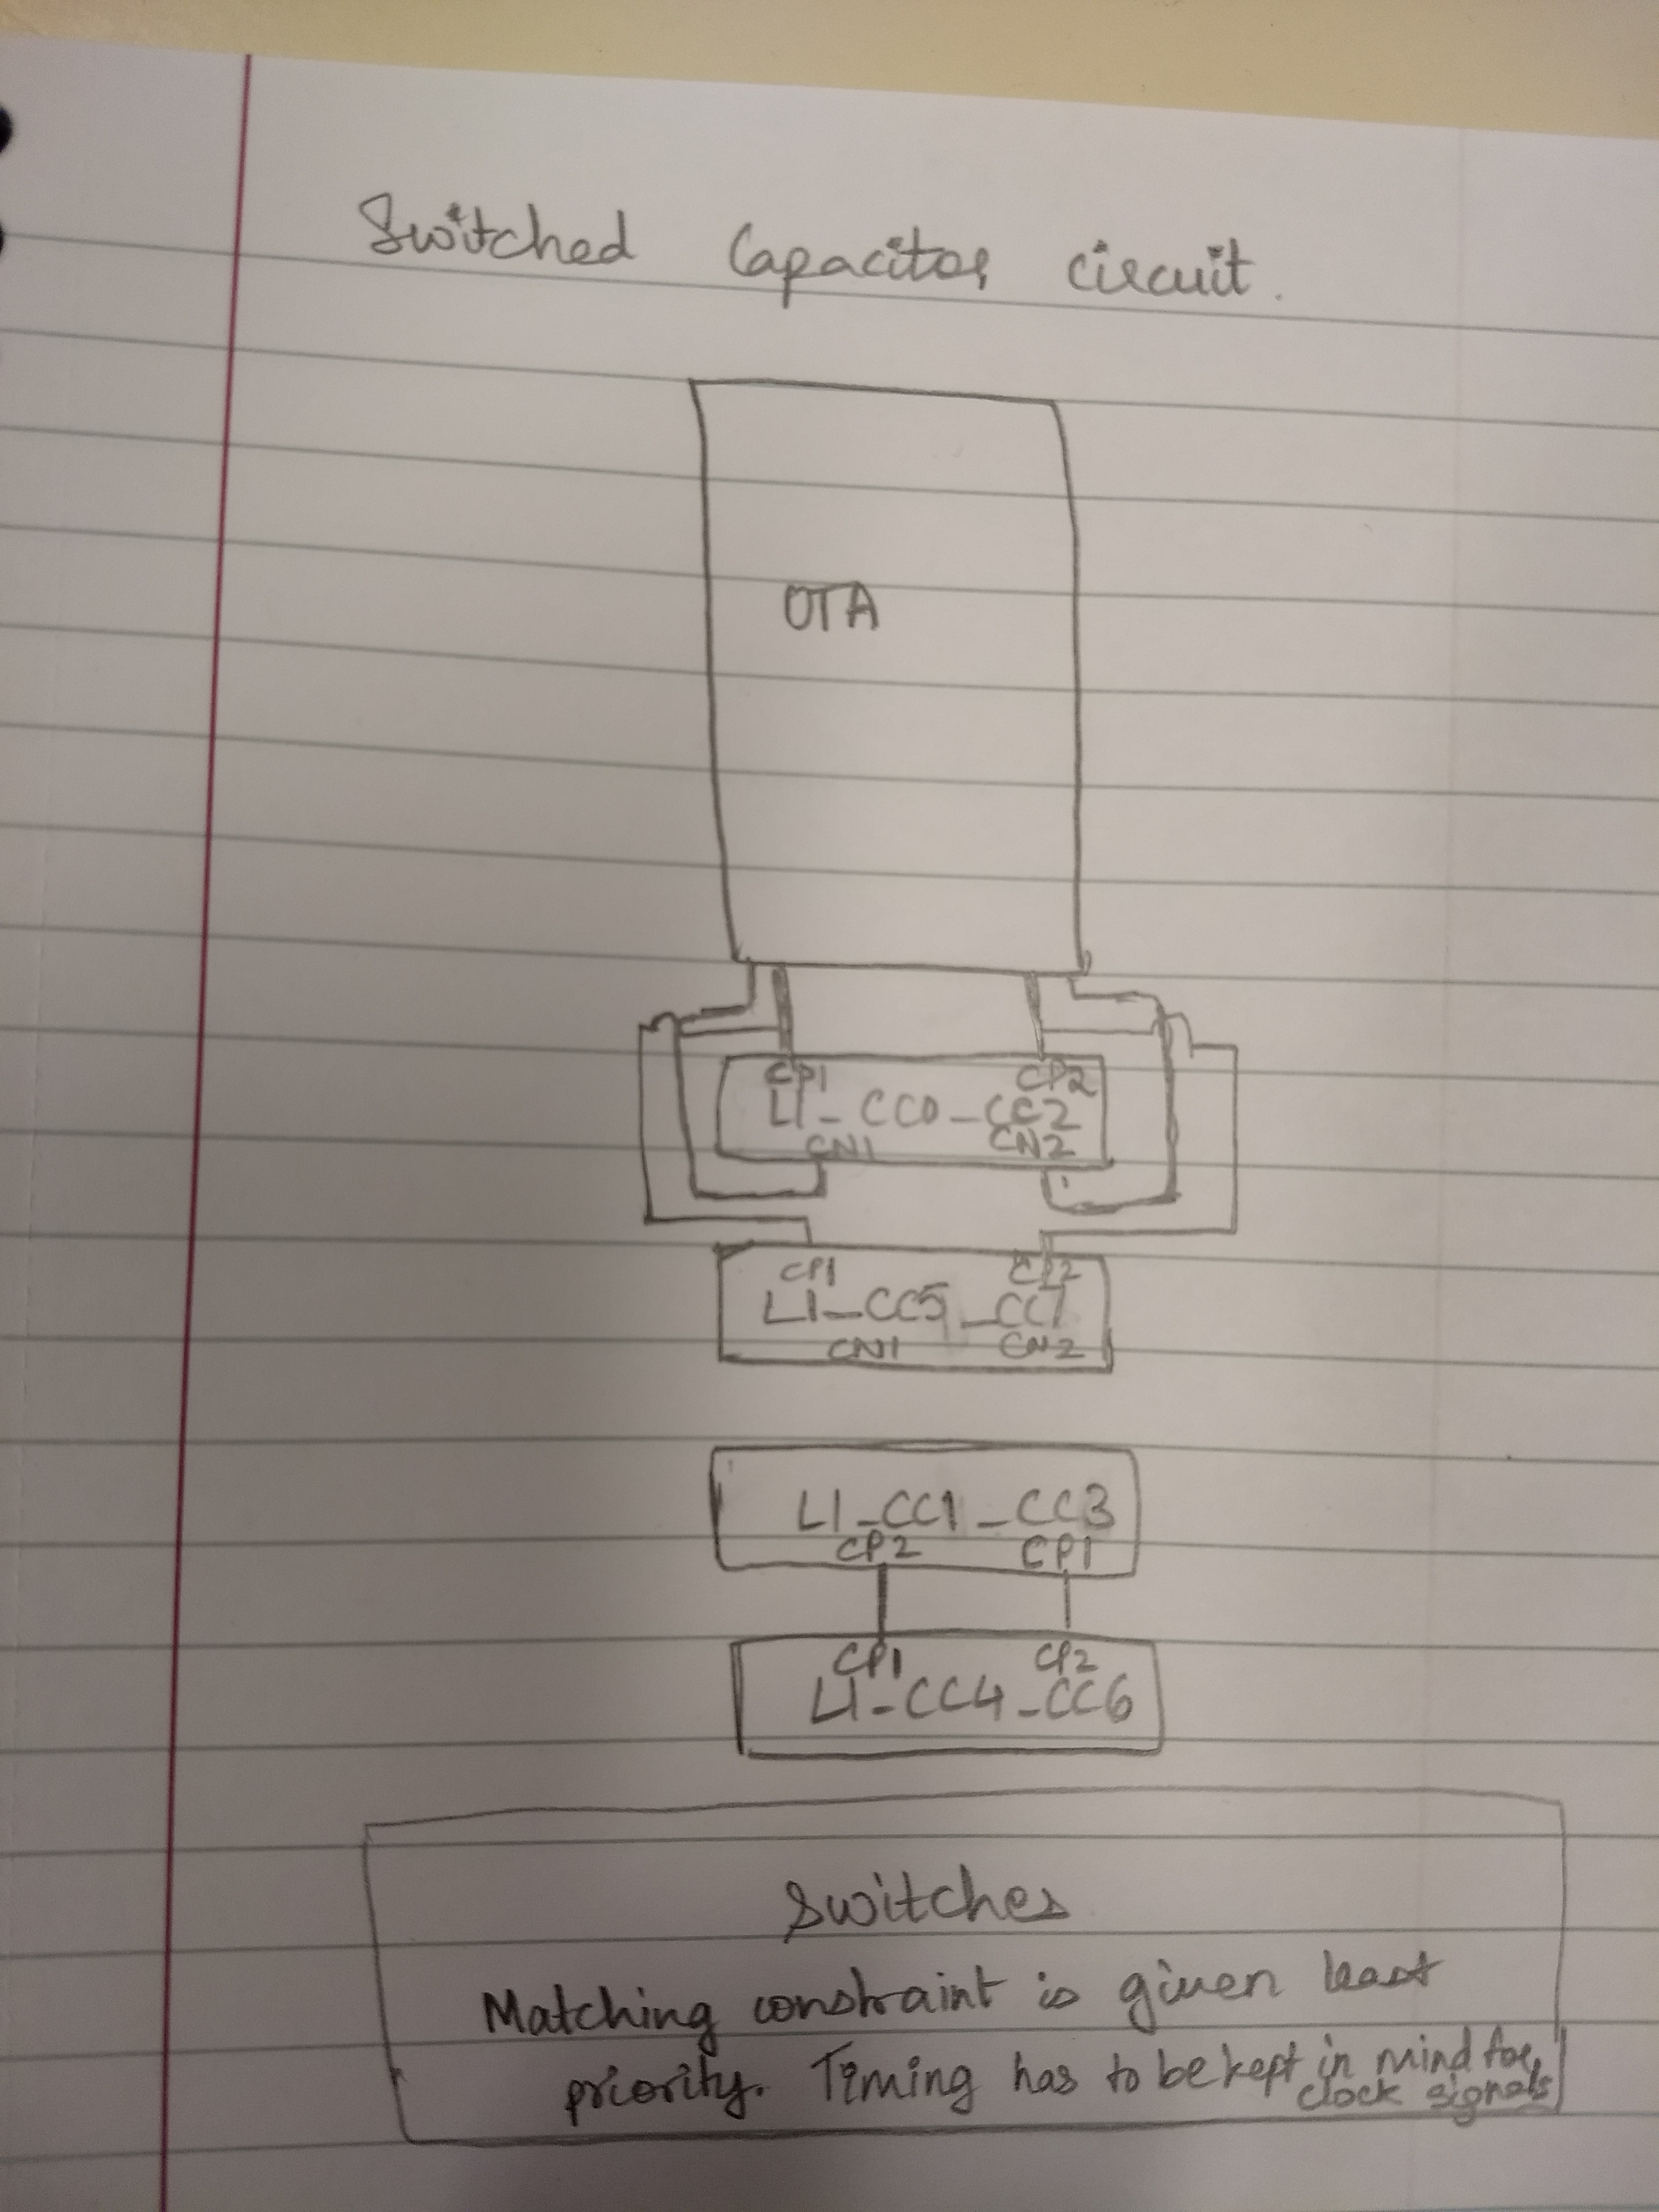 Switched Capacitor circuit.
OTA
CP1 CP2
L1_CC0_CC2
CN1 CN2
CP1 CP2
L1_CC5_CC7
CN1 CN2
L1_CC1_CC3
CP2 CP1
CP1 CP2
L1_CC4_CC6
Switches
Matching constraint is given least
priority. Timing has to be kept in mind for
clock signals